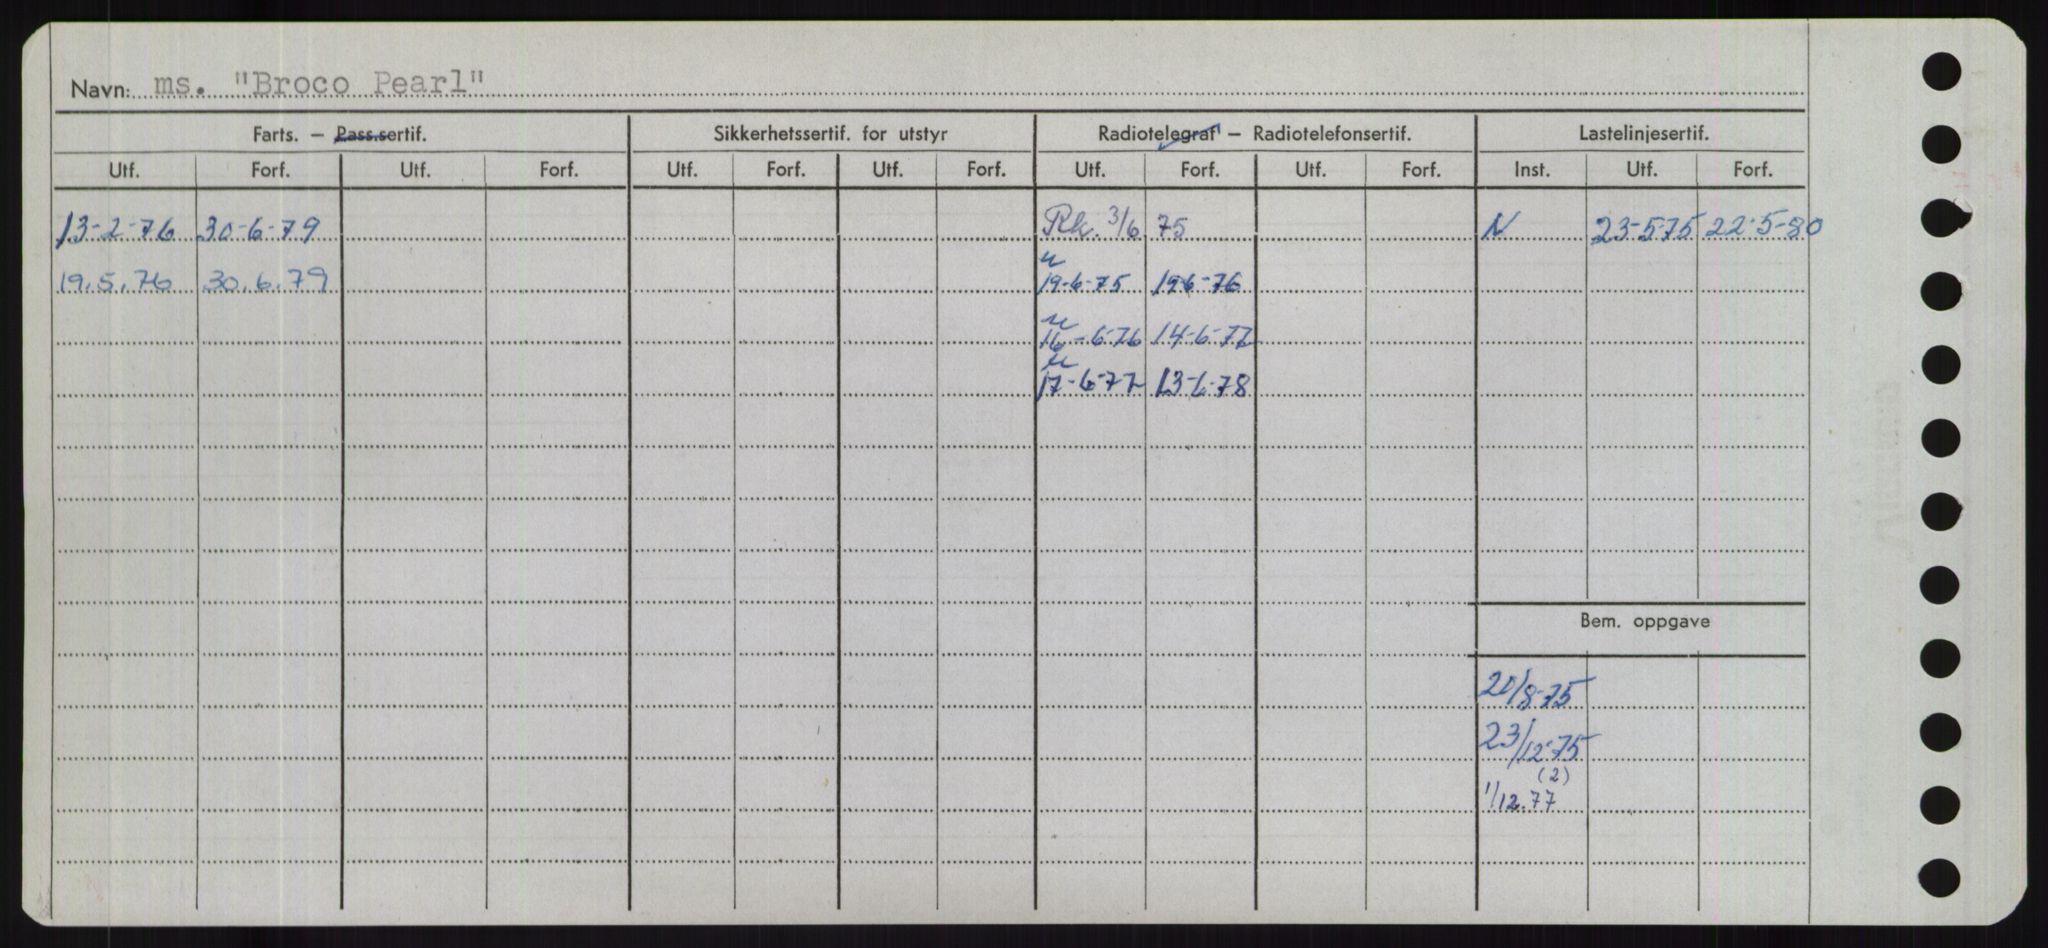 Navn: ms. "Broco Pearl"
Farts. — Pass.sertif. Sikkerhetssertif. for utstyr Radiotelegraf — Radiotelefonsertif. Lastelinjesertif.
Utf. Forf. Utf. Forf. Utf. Forf. Utf. Forf. Utf. Forf. Utf. Forf. Inst. Utf. Forf.
13-2-76 30-6-79 Rk. 3/6 75 N 23-5-75 22-5-80
19.5.76 30.6.79 19-6-75 19-6-76
16-6-76 14-6-77
17-6-77 13-6-78
Bem. oppgave
20/8-75
23/12-75
(2)
1/12.77